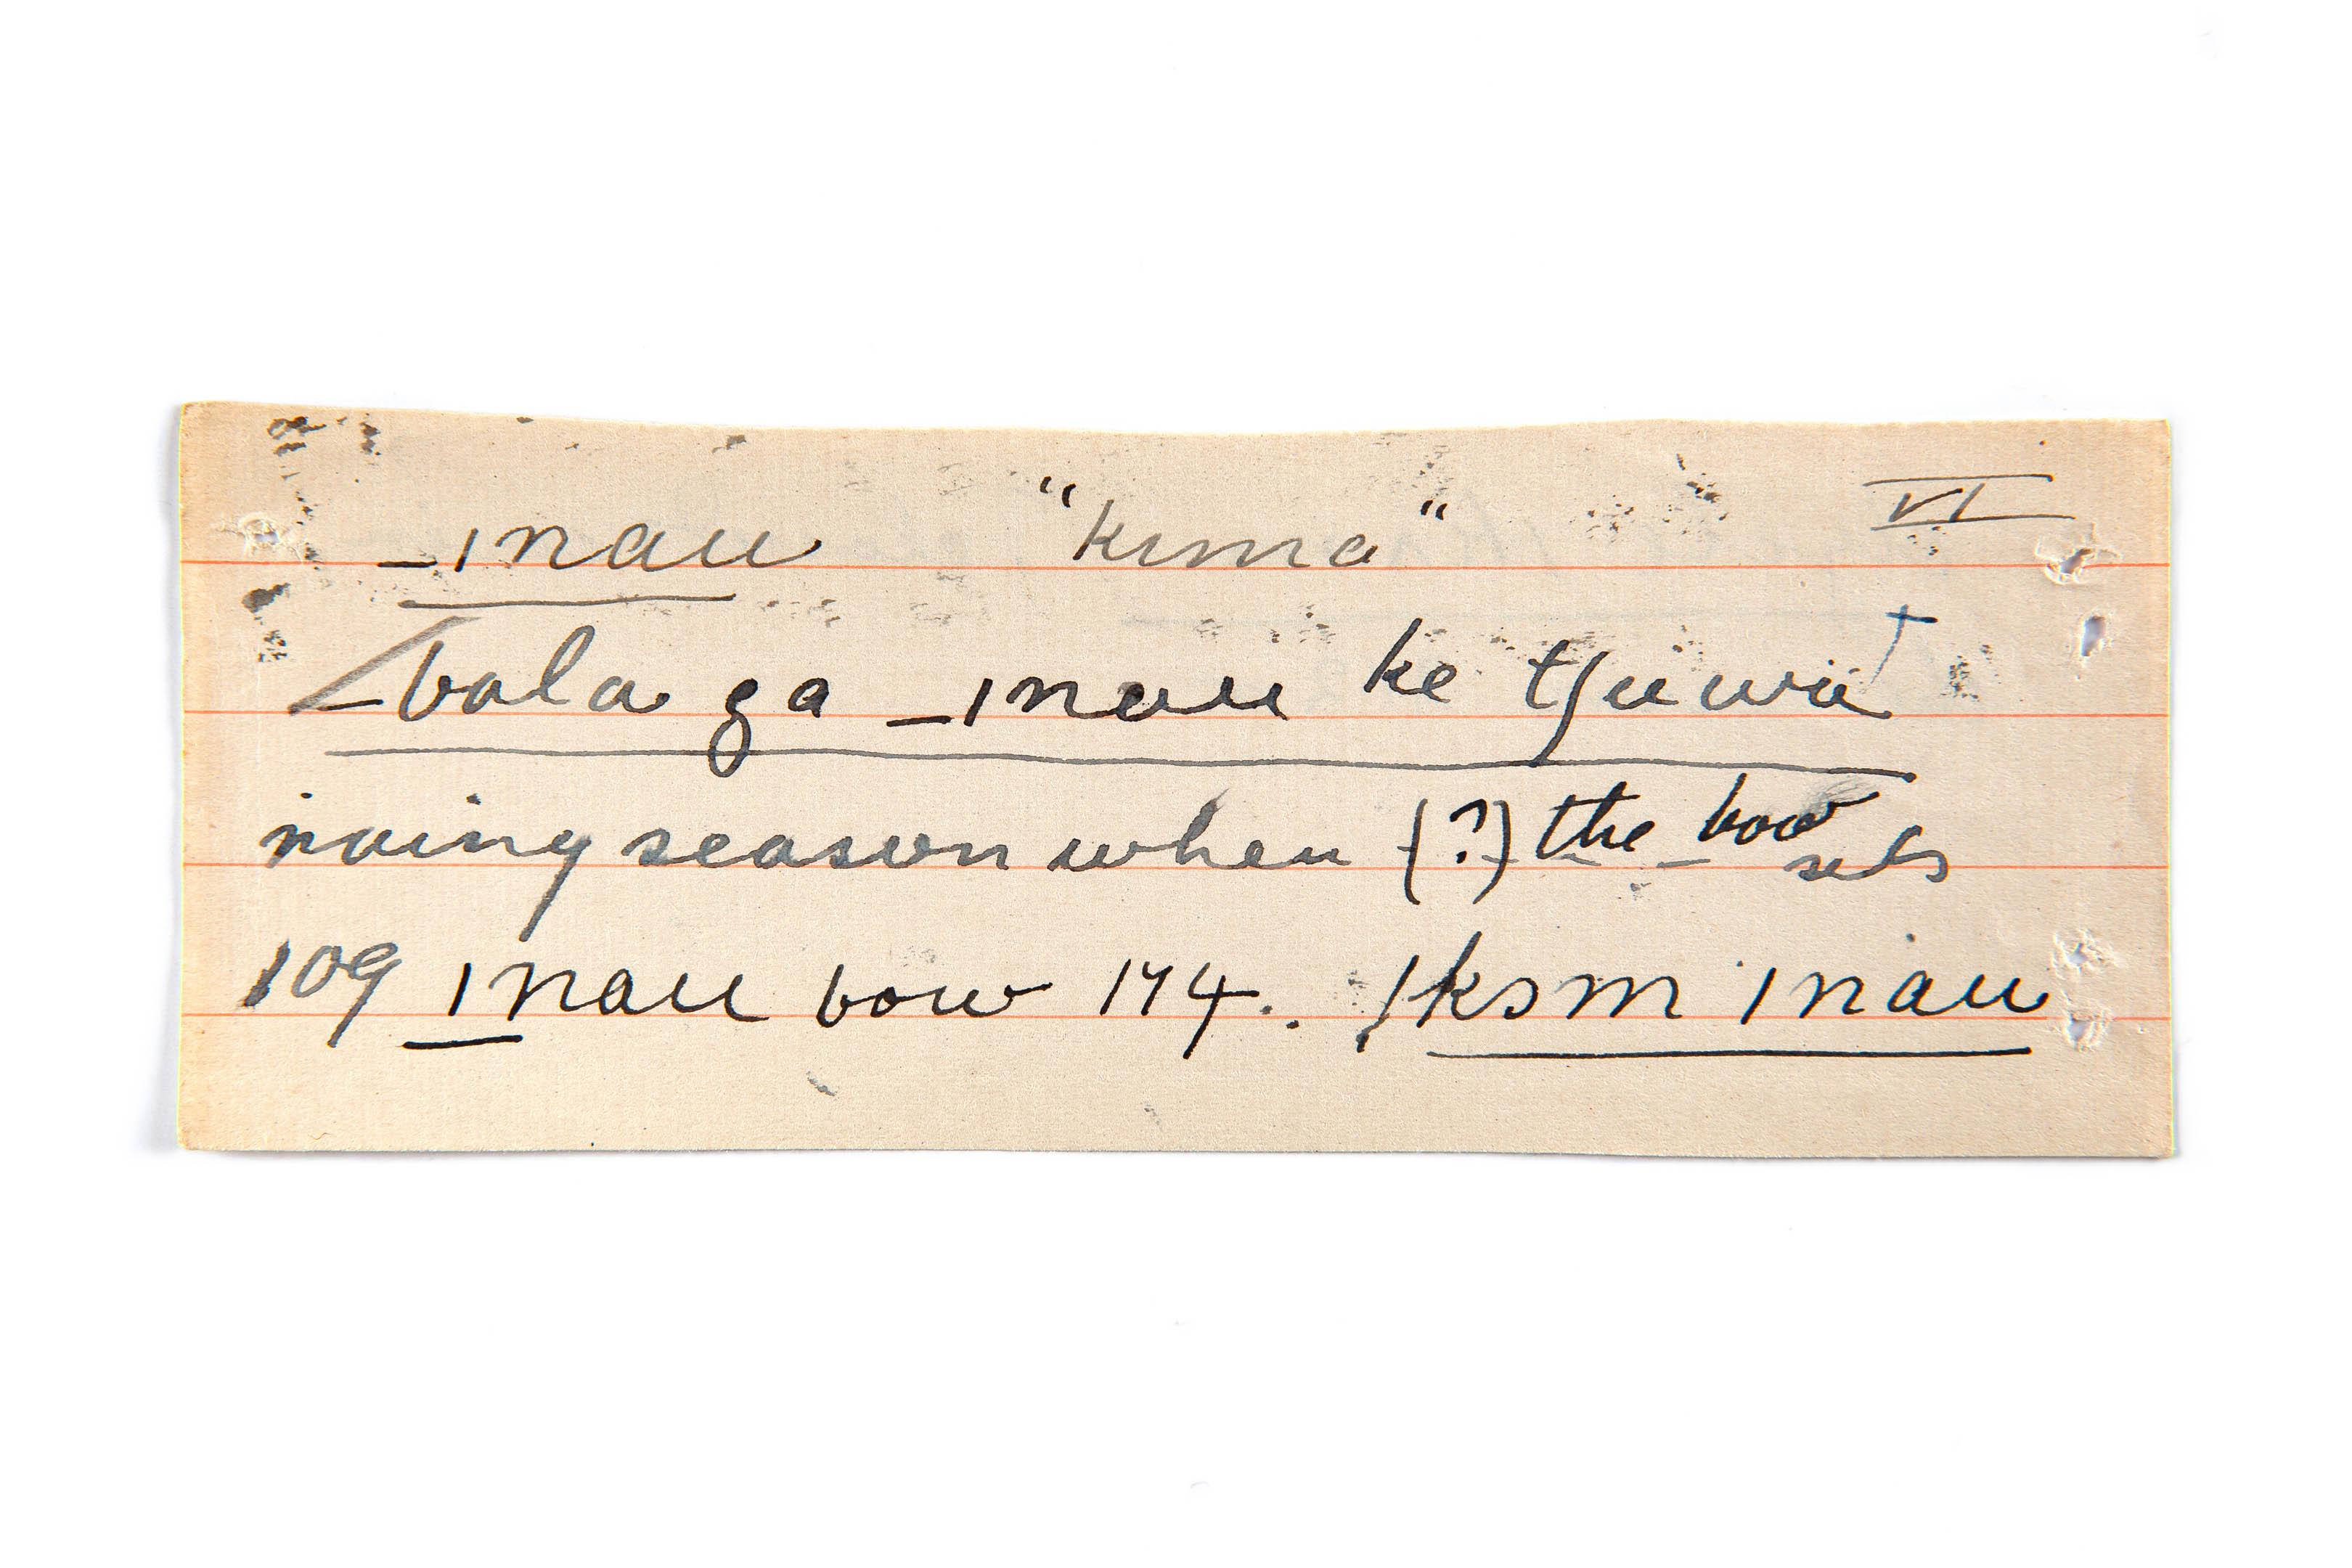 _ınau "kıma" VI
_bala ga _ınau ke tʃuwa†
rainy season when (?) the bow sets
109 ınau bow 174. /ksm ınau